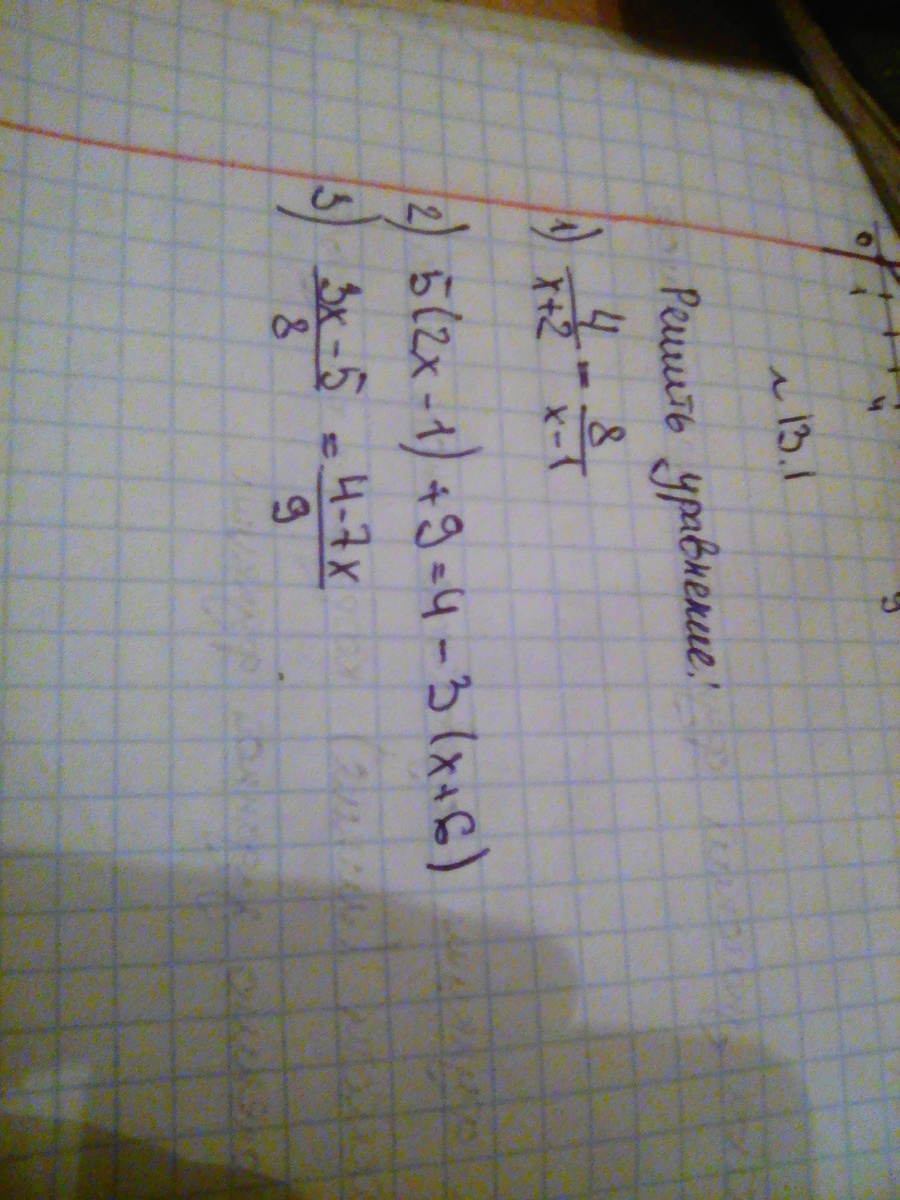 0 1 4 9
№ 13.1
Решить уравнение:
1) 4/(x+2) = 8/(x-1)
2) 5(2x - 1) + 9 = 4 - 3(x+6)
3) (3x - 5)/8 = (4-7x)/9